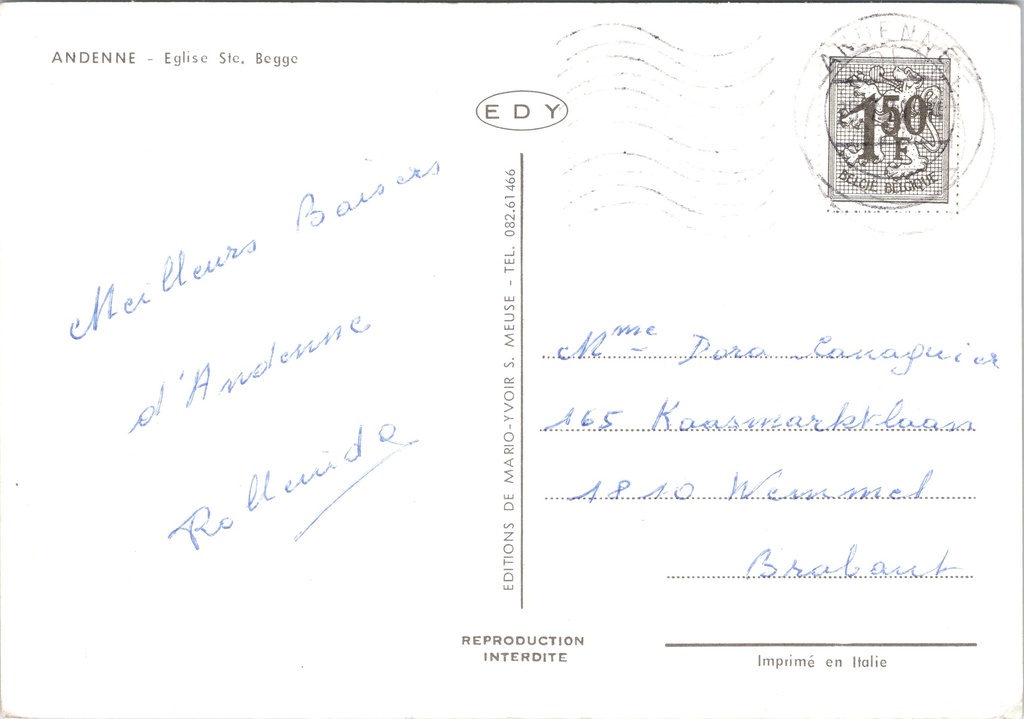 ANDENNE - Eglise Ste. Begge
EDY
ANDENNE
1,50 F
BELGIË BELGIQUE
Meilleurs Baisers
d'Andenne
EDITIONS DE MARIO-YVOIR S. MEUSE - TEL. 082.61 466
Mme Dora
165 Kaasmarktlaan
1810 Wemmel
Brabant
REPRODUCTION
INTERDITE
Imprimé en Italie